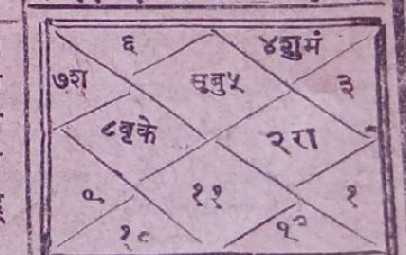 ६ ४शुमं
७श सुबु५ ३
८वृके २रा
९ ११ १
१० १२